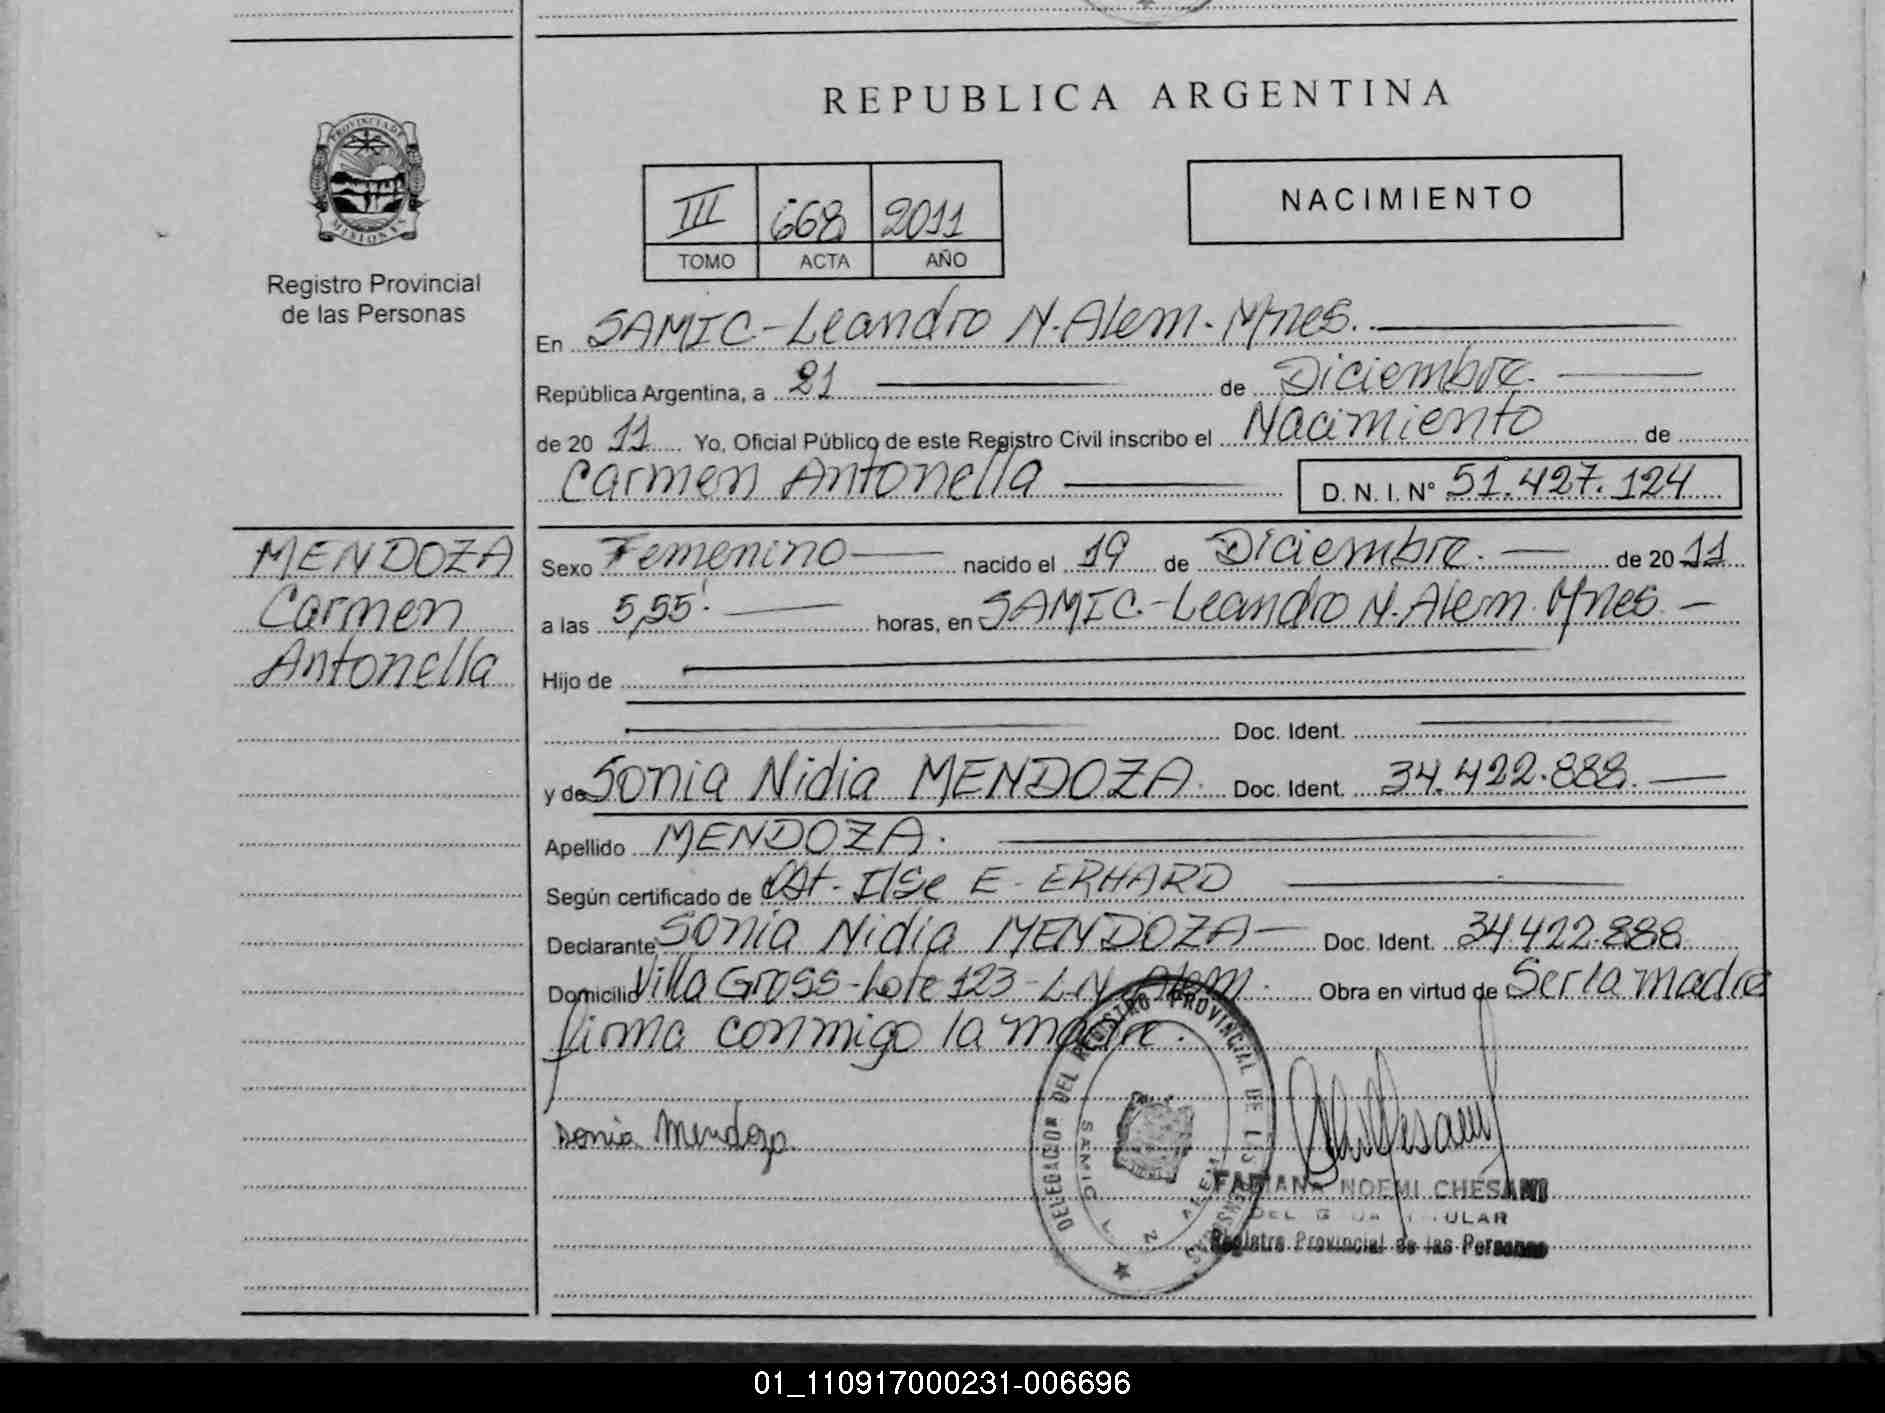 REPUBLICA ARGENTINA
PROVINCIA DE
MISIONES
Registro Provincial
de las Personas
III 668 2011
TOMO ACTA AÑO
NACIMIENTO
En SAMIC-Leandro N.Alem.Mnes.
República Argentina, a 21 de Diciembre.
de 20 11 Yo, Oficial Público de este Registro Civil inscribo el Nacimiento de
Carmen Antonella D. N. I. N° 51.427.124
MENDOZA
Carmen
Antonella
Sexo Femenino nacido el 19 de Diciembre. de 20 11
a las 5,55'. horas, en SAMIC.-Leandro N.Alem.Mnes
Hijo de
Doc. Ident.
y de Sonia Nidia MENDOZA. Doc. Ident. 34.422.888.
Apellido MENDOZA.
Según certificado de Obst. Ilse E. ERHARD
Declarante Sonia Nidia MENDOZA Doc. Ident. 34.422.888
Domicilio Villa Gross-Lote 123-L.N.Alem. Obra en virtud de Ser la madre
firma conmigo la madre.
Sonia Mendoza
DELEGACION DEL REGISTRO PROVINCIAL DE LAS PERSONAS
SAMIC L N ALEM
FABIANA NOEMI CHESANI
Registro Provincial de las Personas
01_110917000231-006696